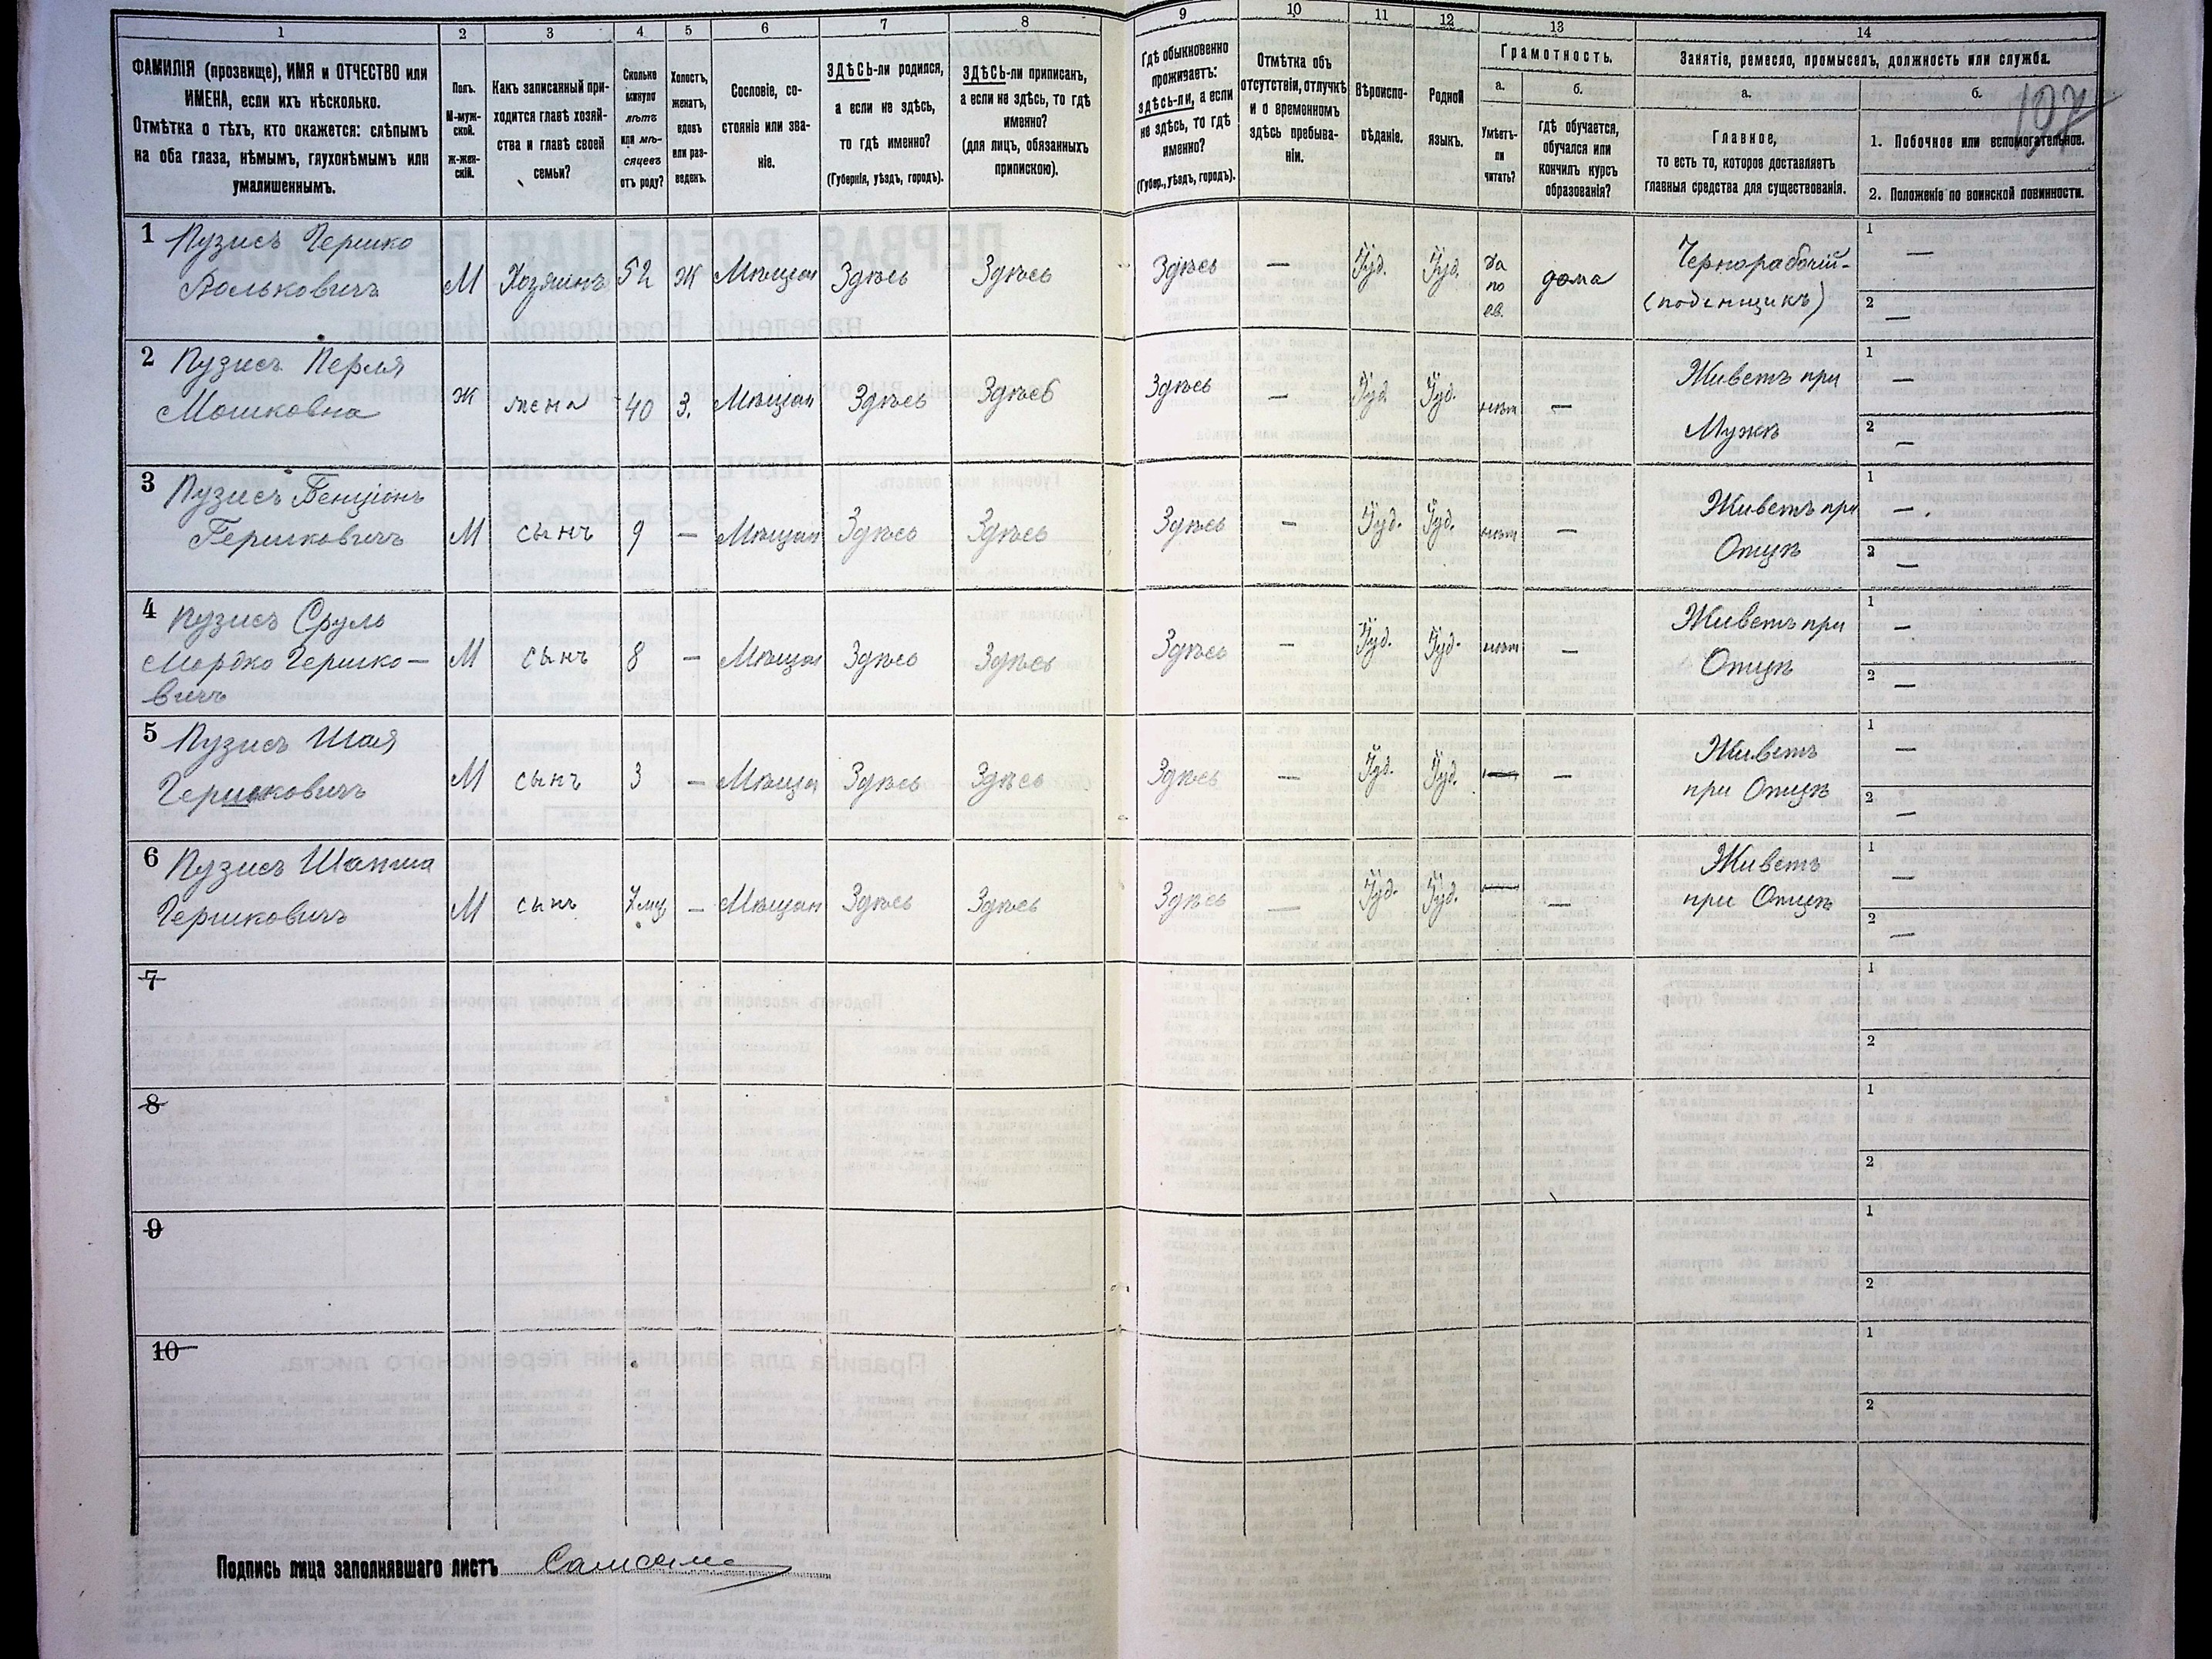 1 2 3 4 5 6 7 8 9 10 11 12 13 14
ФАМИЛІЯ (прозвище), ИМЯ и ОТЧЕСТВО или
ИМЕНА, если ихъ нѣсколько.
Отмѣтка о тѣхъ, кто окажется: слѣпымъ
на оба глаза, нѣмымъ, глухонѣмымъ или
умалишеннымъ.
Полъ.
М-муж-
ской.
ж-жен-
скій.
Какъ записанный при-
ходится главѣ хозяй-
ства и главѣ своей
семьи?
Сколько
минуло
лѣтъ
или мѣ-
сяцевъ
отъ роду?
Холостъ,
женатъ,
вдовъ
или раз-
веденъ.
Сословіе, со-
стояніе или зва-
ніе.
ЗДѢСЬ-ли родился,
а если не здѣсь,
то гдѣ именно?
(Губернія, уѣздъ, городъ).
ЗДѢСЬ-ли приписанъ,
а если не здѣсь, то гдѣ
именно?
(для лицъ, обязанныхъ
припискою).
Гдѣ обыкновенно
проживаетъ:
здѣсь-ли, а если
не здѣсь, то гдѣ
именно?
(Губер., уѣздъ, городъ).
Отмѣтка объ
отсутствіи, отлучкѣ
и о временномъ
здѣсь пребыва-
ніи.
Вѣроиспо-
вѣданіе.
Родной
языкъ.
Грамотность.
а.
Умѣетъ-
ли
читать?
б.
гдѣ обучается,
обучался или
кончилъ курсъ
образованія?
Занятіе, ремесло, промыселъ, должность или служба.
а.
Главное,
то есть то, которое доставляетъ
главныя средства для существованія.
б.
197
1. Побочное или вспомогательное.
2. Положеніе по воинской повинности.
1 Пузисъ Гершко
Вольковичъ
М Хозяинъ 52 Ж Мѣщан Здѣсь Здѣсь Здѣсь — Іуд. Іуд.
да
по
ев.
дома
Чернорабочій-
(поденщикъ)
1 —
2 —
2 Пузисъ Перля
Мошковна
Ж жена 40 З. Мѣщан Здѣсь Здѣсь Здѣсь — Іуд Іуд. нѣт —
Живетъ при
Мужѣ
1 —
2 —
3 Пузисъ Бенціонъ
Гершковичъ
М сынъ 9 — Мѣщан Здѣсь Здѣсь Здѣсь — Іуд. Іуд. нѣт —
Живетъ при
Отцѣ
1 —
2 —
4 Пузисъ Сруль
Мордко Гершко—
вичъ
М сынъ 8 — Мѣщан Здѣсь Здѣсь Здѣсь — Іуд. Іуд. нѣт —
Живетъ при
Отцѣ
1 —
2 —
5 Пузисъ Шая
Гершковичъ
М сынъ 3 — Мѣща Здѣсь Здѣсь Здѣсь — Іуд. Іуд. —
Живетъ
при Отцѣ
1 —
2 —
6 Пузисъ Шапша
Гершковичъ
М сынъ 7 мц — Мѣщан Здѣсь Здѣсь Здѣсь — Іуд. Іуд. —
Живетъ
при Отцѣ
1 —
2 —
7
1
2
8
1
2
9
1
2
10
1
2
Подпись лица заполнявшаго листъ